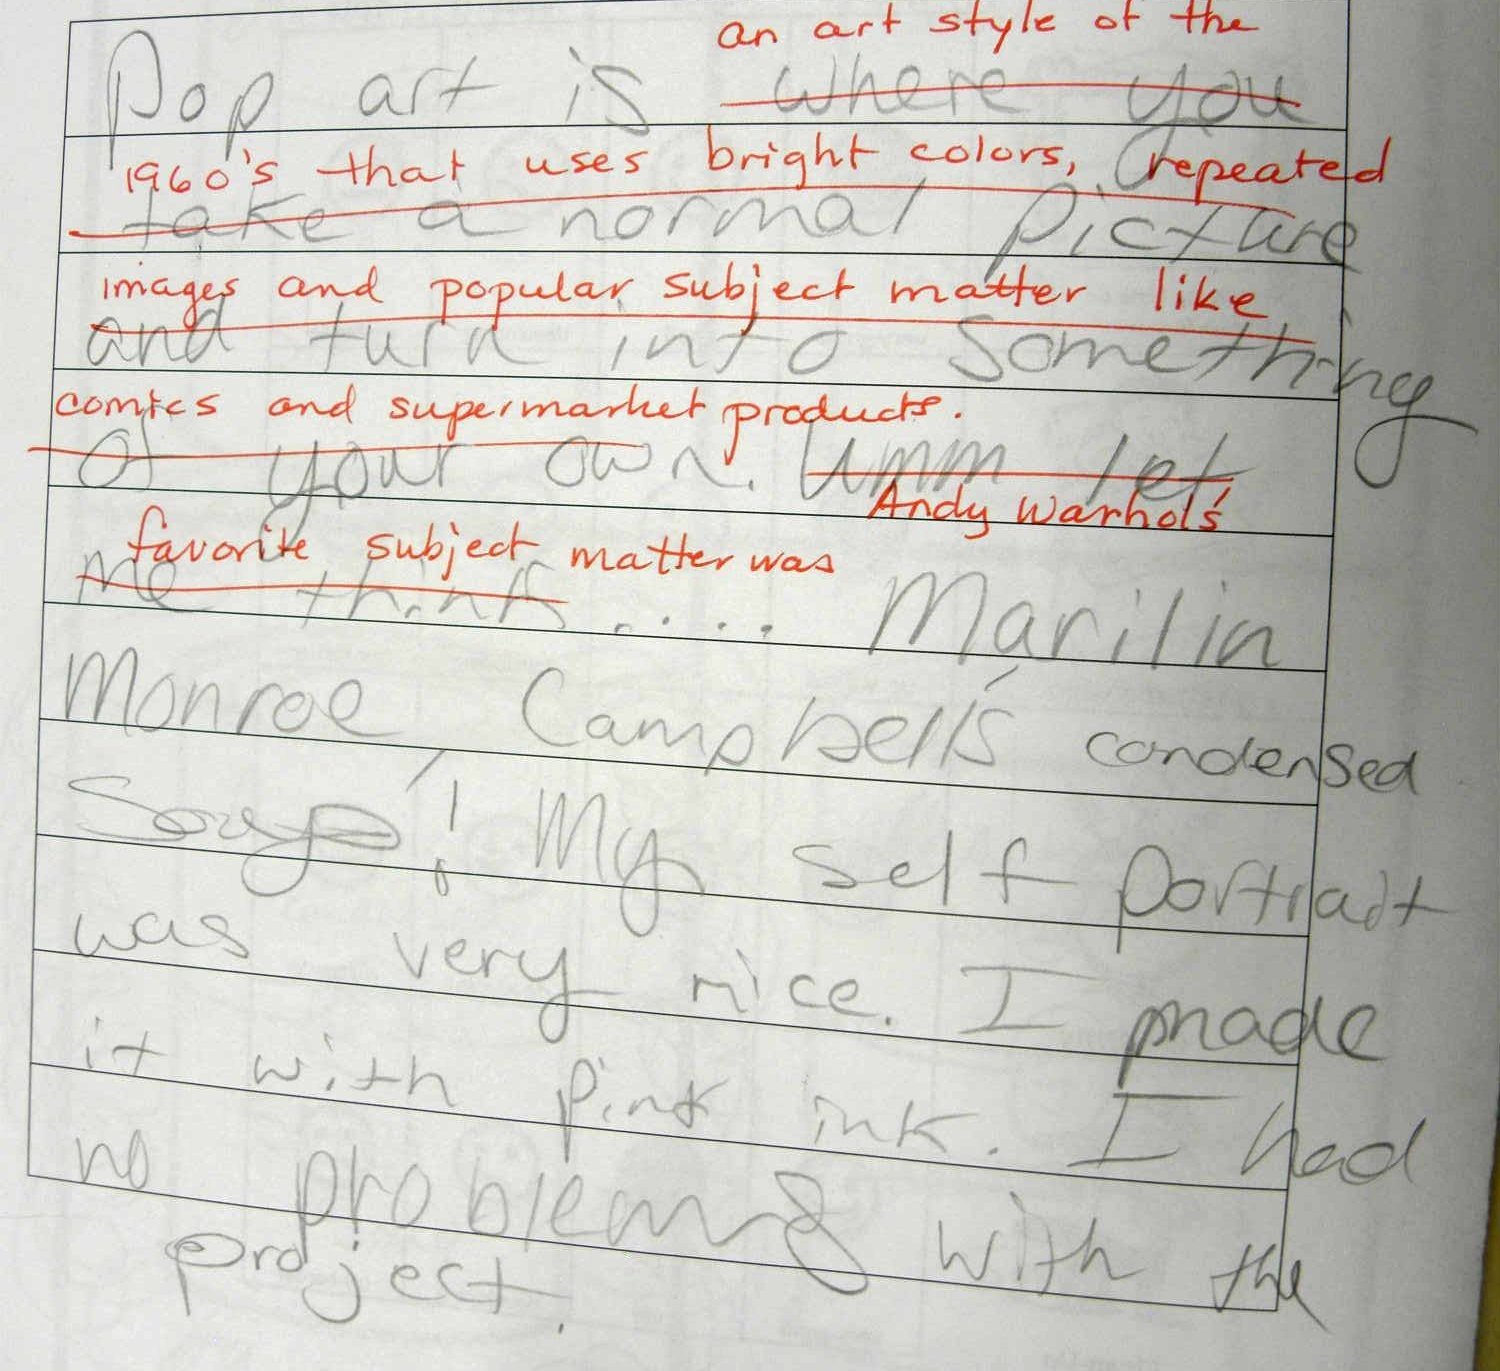 an art style of the
Pop art is where you
1960's that uses bright colors, repeated
take a normal picture
images and popular subject matter like
and turn into something
comics and supermarket products.
of your own. Umm let
Andy Warhol's
favorite subject matter was
me think..... Marilin
Monroe, Campbell's condensed
Soup! My self portrait
was very nice. I made
it with pink ink. I had
no problems with the
project.